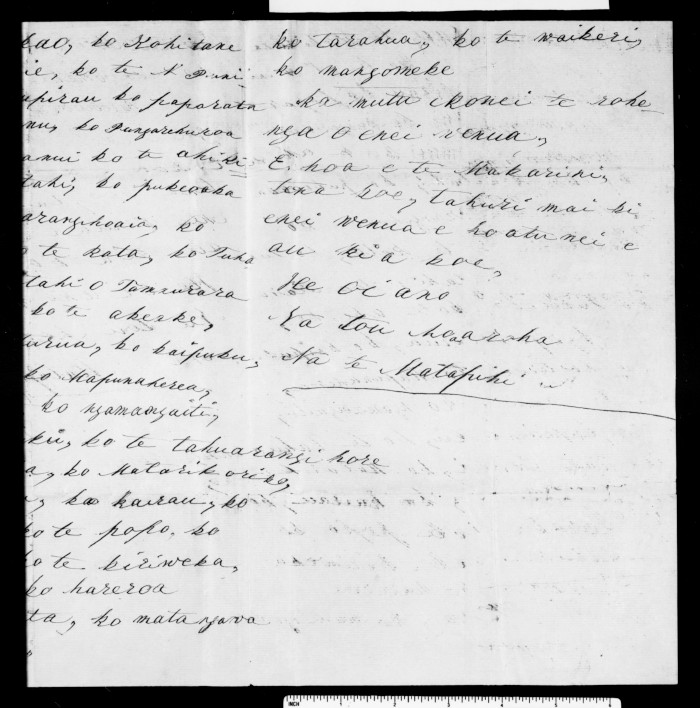 kao, ko Kohitane
ie, ko te
upirau ko paparata
nui, ko Pungarehuroa
amui ko te ahi, ki
tahi, ko pukeoaka
arangihoaia, ko
te Rata, ko Tuho
tahi O
ko te akeake,
turua, ko kaipuku,
ko Mapunaherea,
ko ngamangaiti,
ku, ko te tahuarangi hore
a, ko Matarikoriko,
ko kairau, ko
ko te popo, ko
ko te kiriweka,
ko hareroa
ta, ko matangava
ko tarahua, ko te waikeri,
ko mangomeke
ka mutu ikonei te rohe
nga O enei wenua,
E hoa e te Makarini,
tena koe, tahuri mai ki
enei wenua e hoatu nei e
au kia koe,
Heoi ano
Na tou hoa aroha
Na te Matapihi
INCH 1 2 3 4 5 6